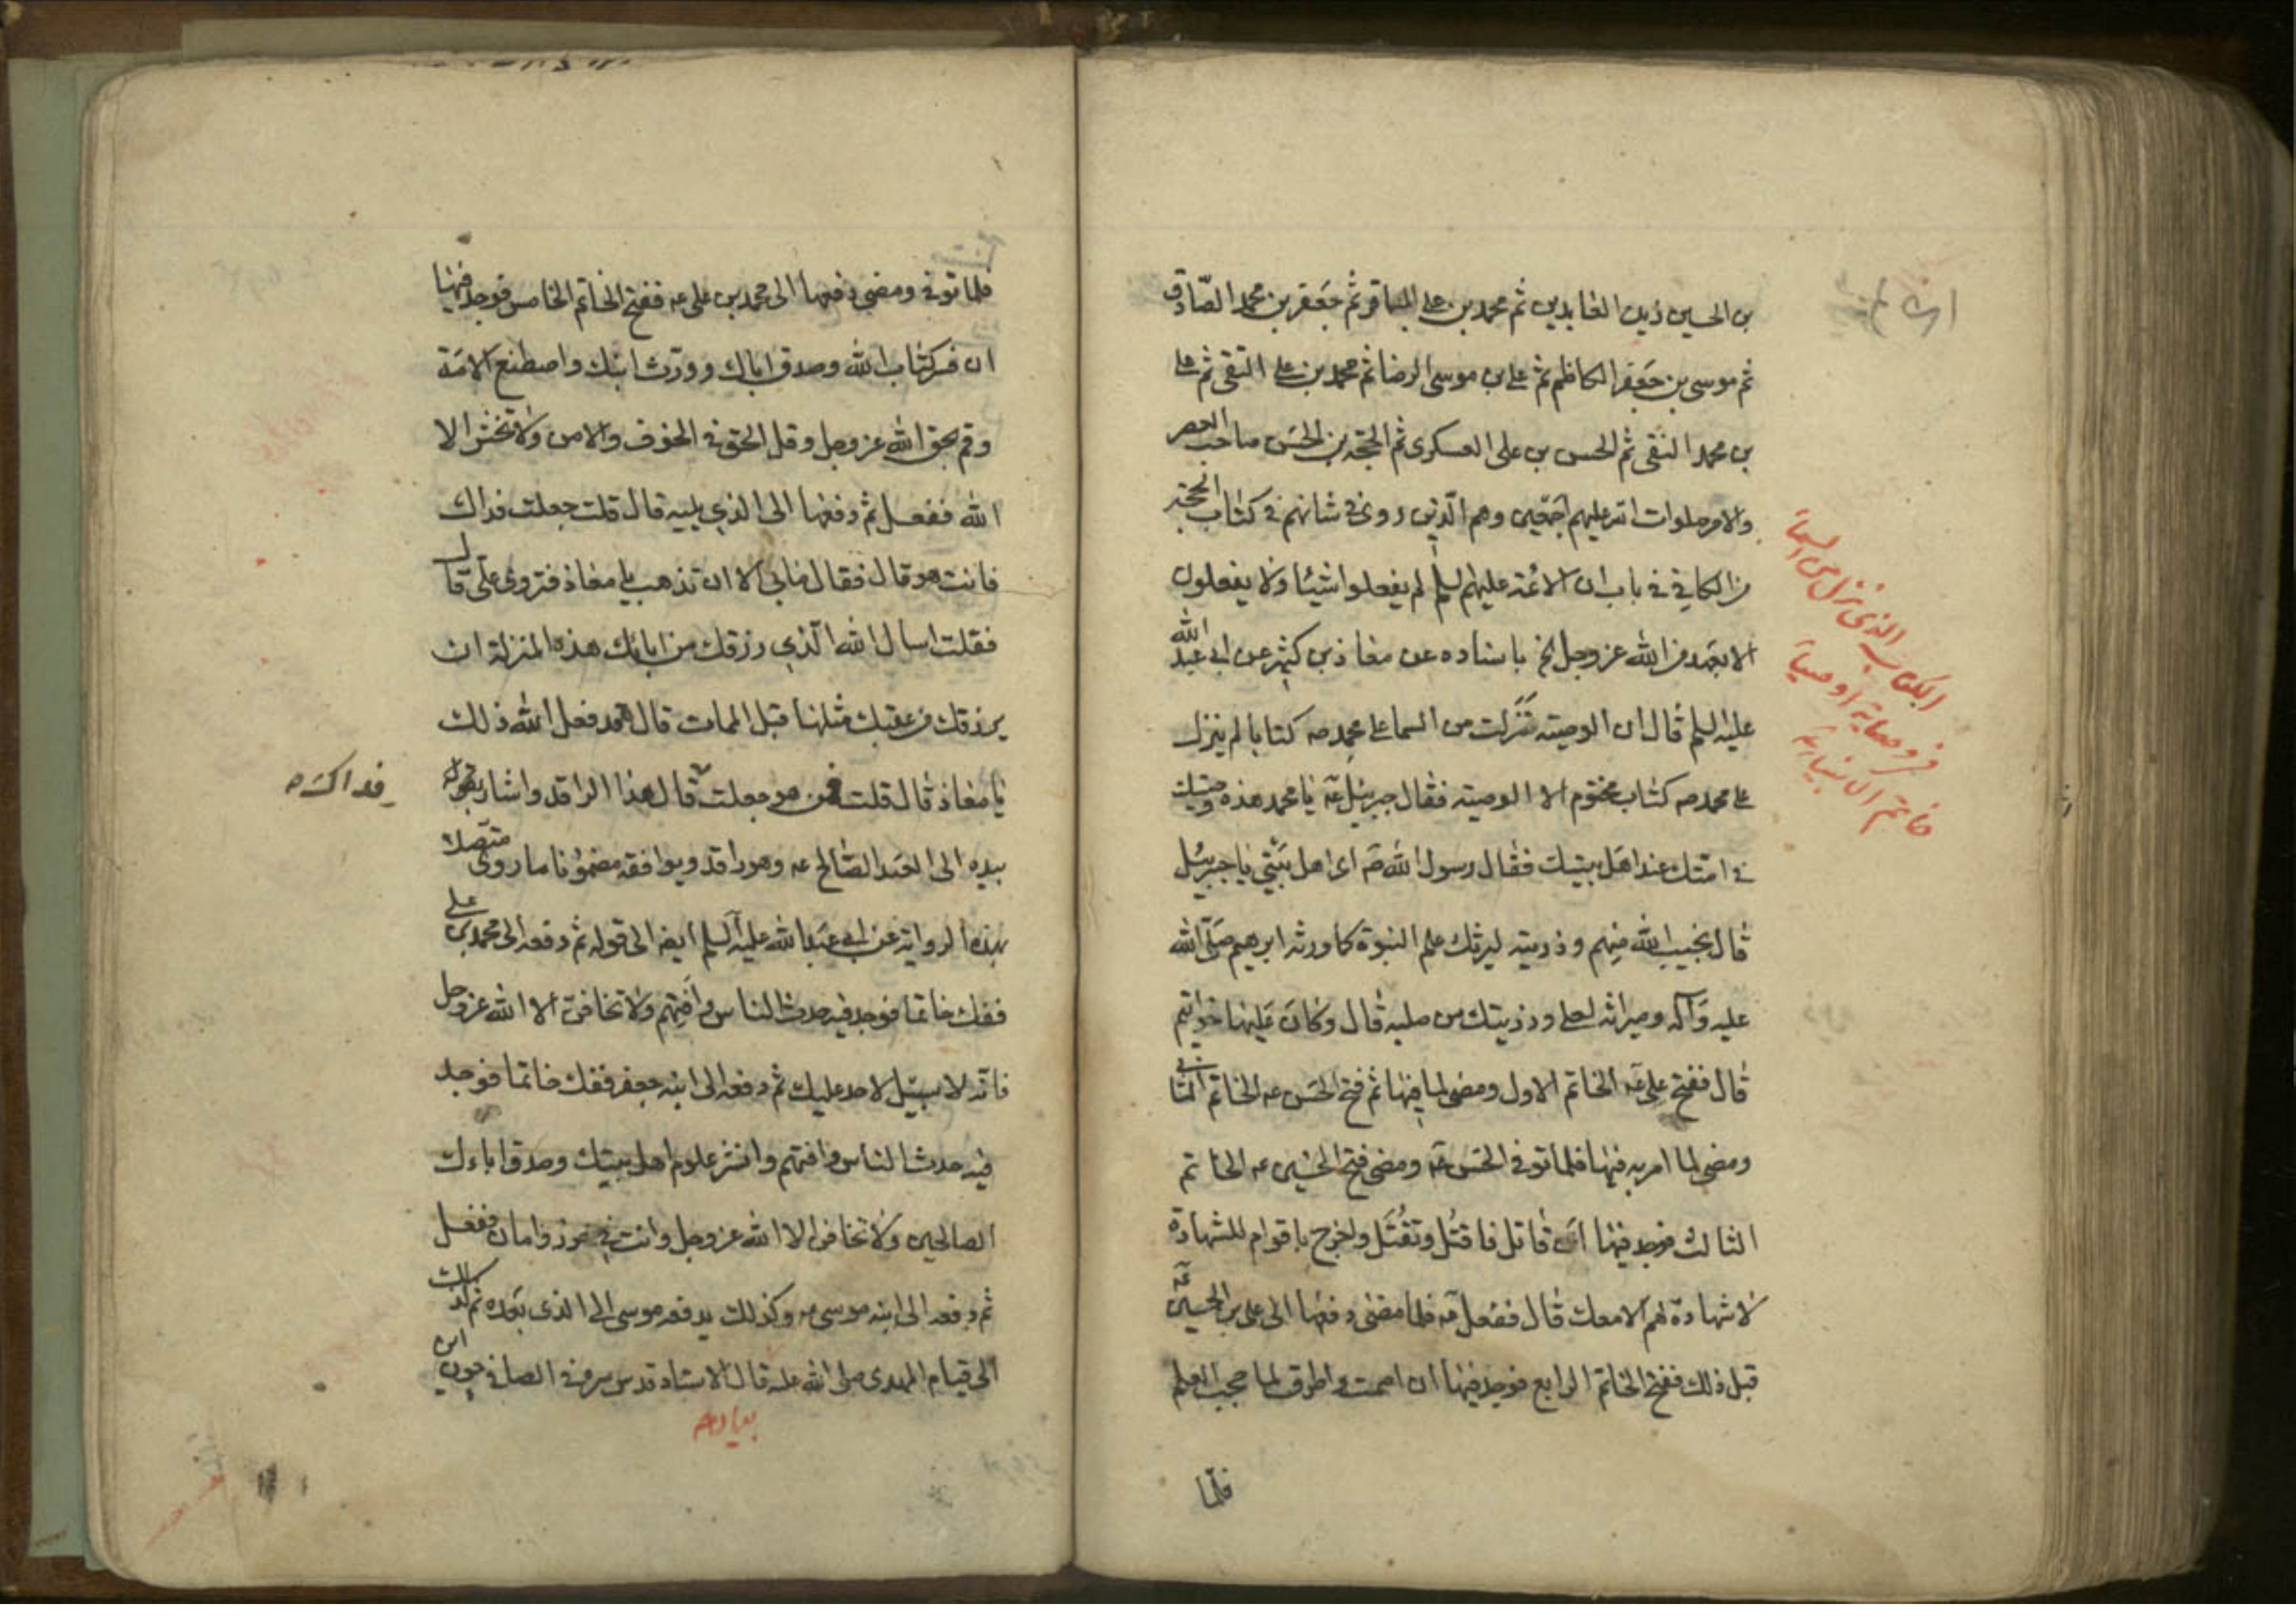 بن الحسين زين العابدين ثم محمد بن علي الباقر ثم جعفر بن محمد الصادق
ثم موسى بن جعفر الكاظم ثم علي بن موسى الرضا ثم محمد بن علي التقي ثم علي
بن محمد النقي ثم الحسن بن علي العسكري ثم الحجة بن الحسن صاحب العصر
والامر صلوات الله عليهم اجمعين وهم الذين روى في شانهم في كتاب الحجة
من الكافي في باب ان الائمة عليهم السلم لم يفعلوا شيئا ولا يفعلون
الا بعهد من الله عز وجل الخ باسناده عن معاذ بن كثير عن ابي عبد الله
عليه السلم قال ان الوصية نزلت من السما على محمد صه كتابا لم ينزل
على محمد صه كتاب مختوم الا الوصية فقال جبرئيل عه يا محمد هذه وصيتك
في امتك عند اهل بيتك فقال رسول الله صه اى اهل بيتي يا جبرئيل
قال نجيب الله منهم وذريته ليرثك علم النبوة كما ورثه ابرهيم صلى الله
عليه وآله وميراثه لعلي وذريتك من صلبه قال وكان عليها خواتيم
قال ففتح علي عه الخاتم الاول ومضى لما فيها ثم فتح الحسن عه الخاتم الثاني
ومضى لما امر به فيها فلما توفي الحسن عه ومضى فتح الحسين عه الخاتم
الثالث فوجد فيها ان قاتل فاقتل وتقتل واخرج باقوام للشهادة
لا شهادة لهم الا معك قال ففعل عه فلما مضى دفعها الى علي بن الحسين عه
قبل ذلك ففتح الخاتم الرابع فوجد فيها ان اصمت واطرق لما حجب العلم
فلما
الكتاب الذى نزل من السما
في وصاية اوصيا
خاتم الانبيا
فلما توفي ومضى دفعها الى محمد بن علي عه ففتح الخاتم الخامس فوجد فيها
ان فسر كتاب الله وصدق اباك وورث ابنك واصطنع الامة
وقم بحق الله عز وجل وقل الحق في الخوف والامن ولا تخش الا
الله ففعل ثم دفعها الى الذي يليه قال قلت جعلت فداك
فانت هو قال فقال ما بي الا ان تذهب يا معاذ فتروى علي قال
فقلت اسال الله الذي رزقك من ابائك هذه المنزلة ان
يرزقك من عقبك مثلها قبل الممات قال قد فعل الله ذلك
يا معاذ قال قلت فمن هو جعلت قال هذا الراقد واشار بقوله
فداك صه
بيده الى العبد الصالح عه وهو راقد ويوافقه مضمونا ما روى متصلا
بهذه الرواية عن ابي عبد الله عليه السلم ايضا الى قوله ثم دفعه الى محمد بن علي
ففك خاتما فوجد فيه حدث الناس وافتهم ولا تخافن الا الله عز وجل
فانه لا سبيل لاحد عليك ثم دفعه الى ابنه جعفر ففك خاتما فوجد
فيه حدث الناس وافتهم وانشر علوم اهل بيتك وصدق اباءك
الصالحين ولا تخافن الا الله عز وجل وانت في حرز وامان ففعل
ثم دفعه الى ابنه موسى عه وكذلك يدفعه موسى الى الذى بعده ثم كذلك
الى قيام المهدى صلى الله عليه قال الاستاد قدس سره في الصافي